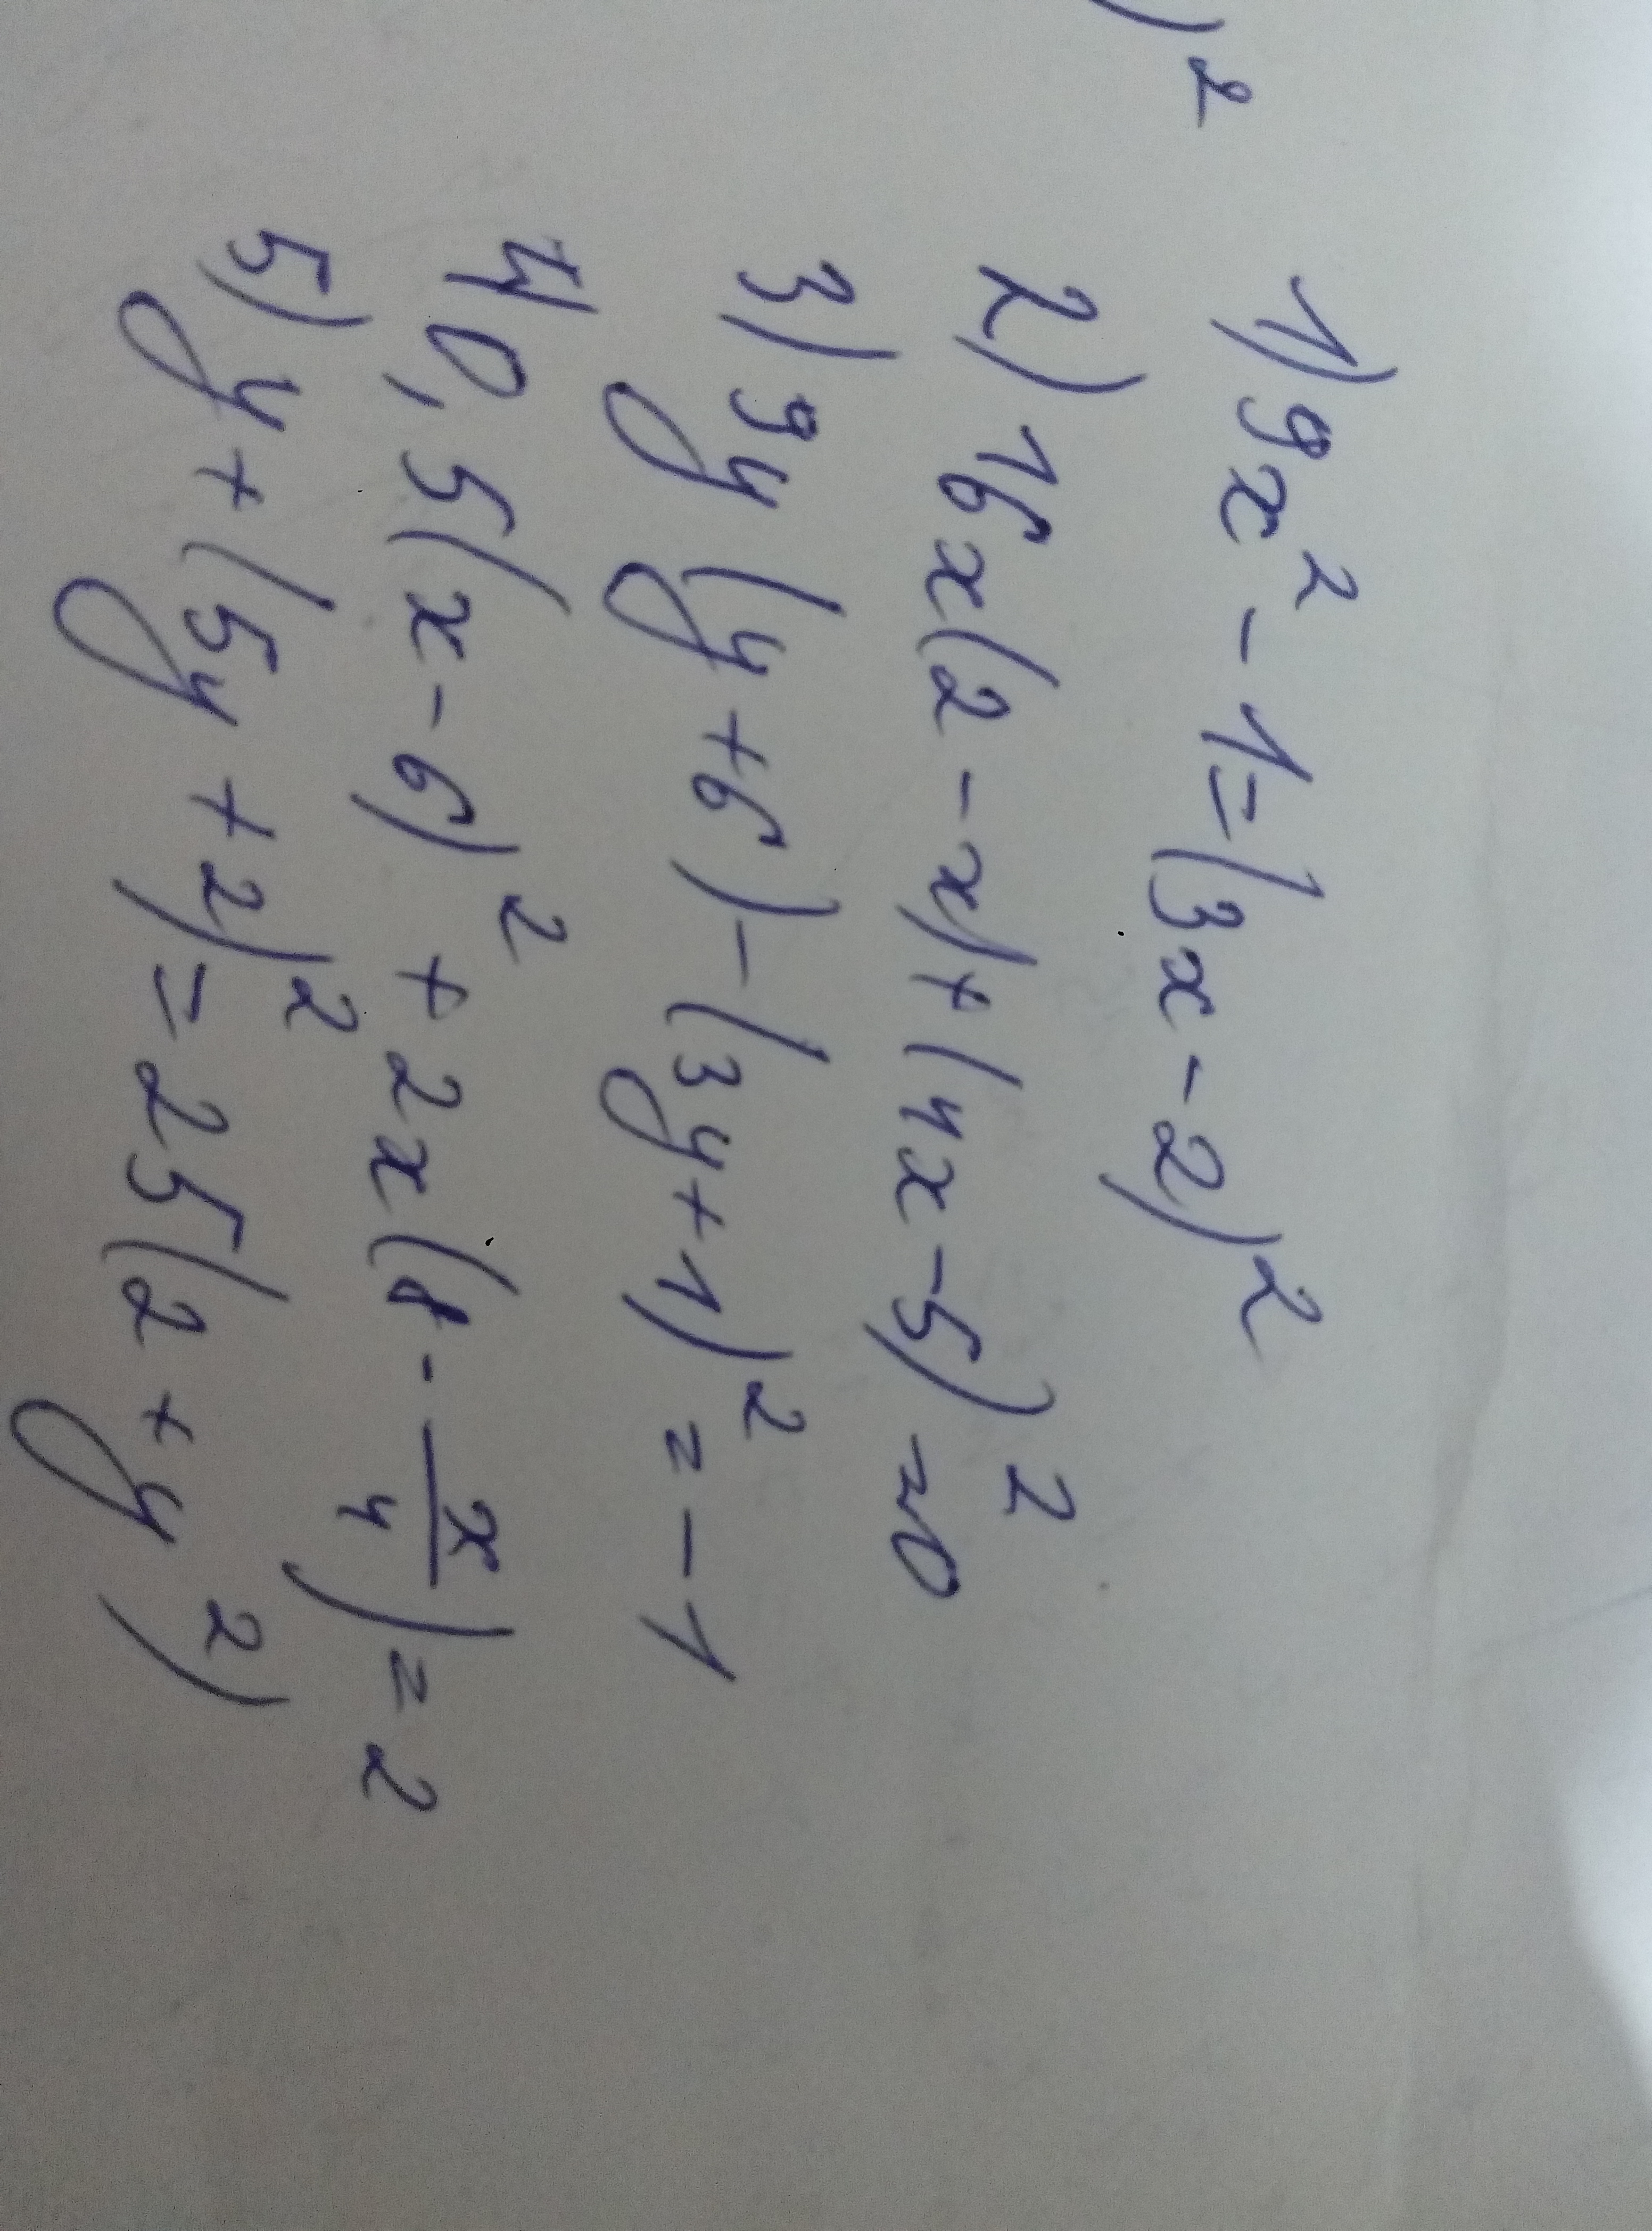 )²
1) 9x² - 1 = (3x - 2)²
2) 16x(2 - x) + (4x - 5)² = 0
3) 9y(y + 6) - (3y + 1)² = -1
4) 0,5(x - 6)² + 2x(8 - x/4) = 2
5) y + (5y + 2)² = 25(2 + y²)